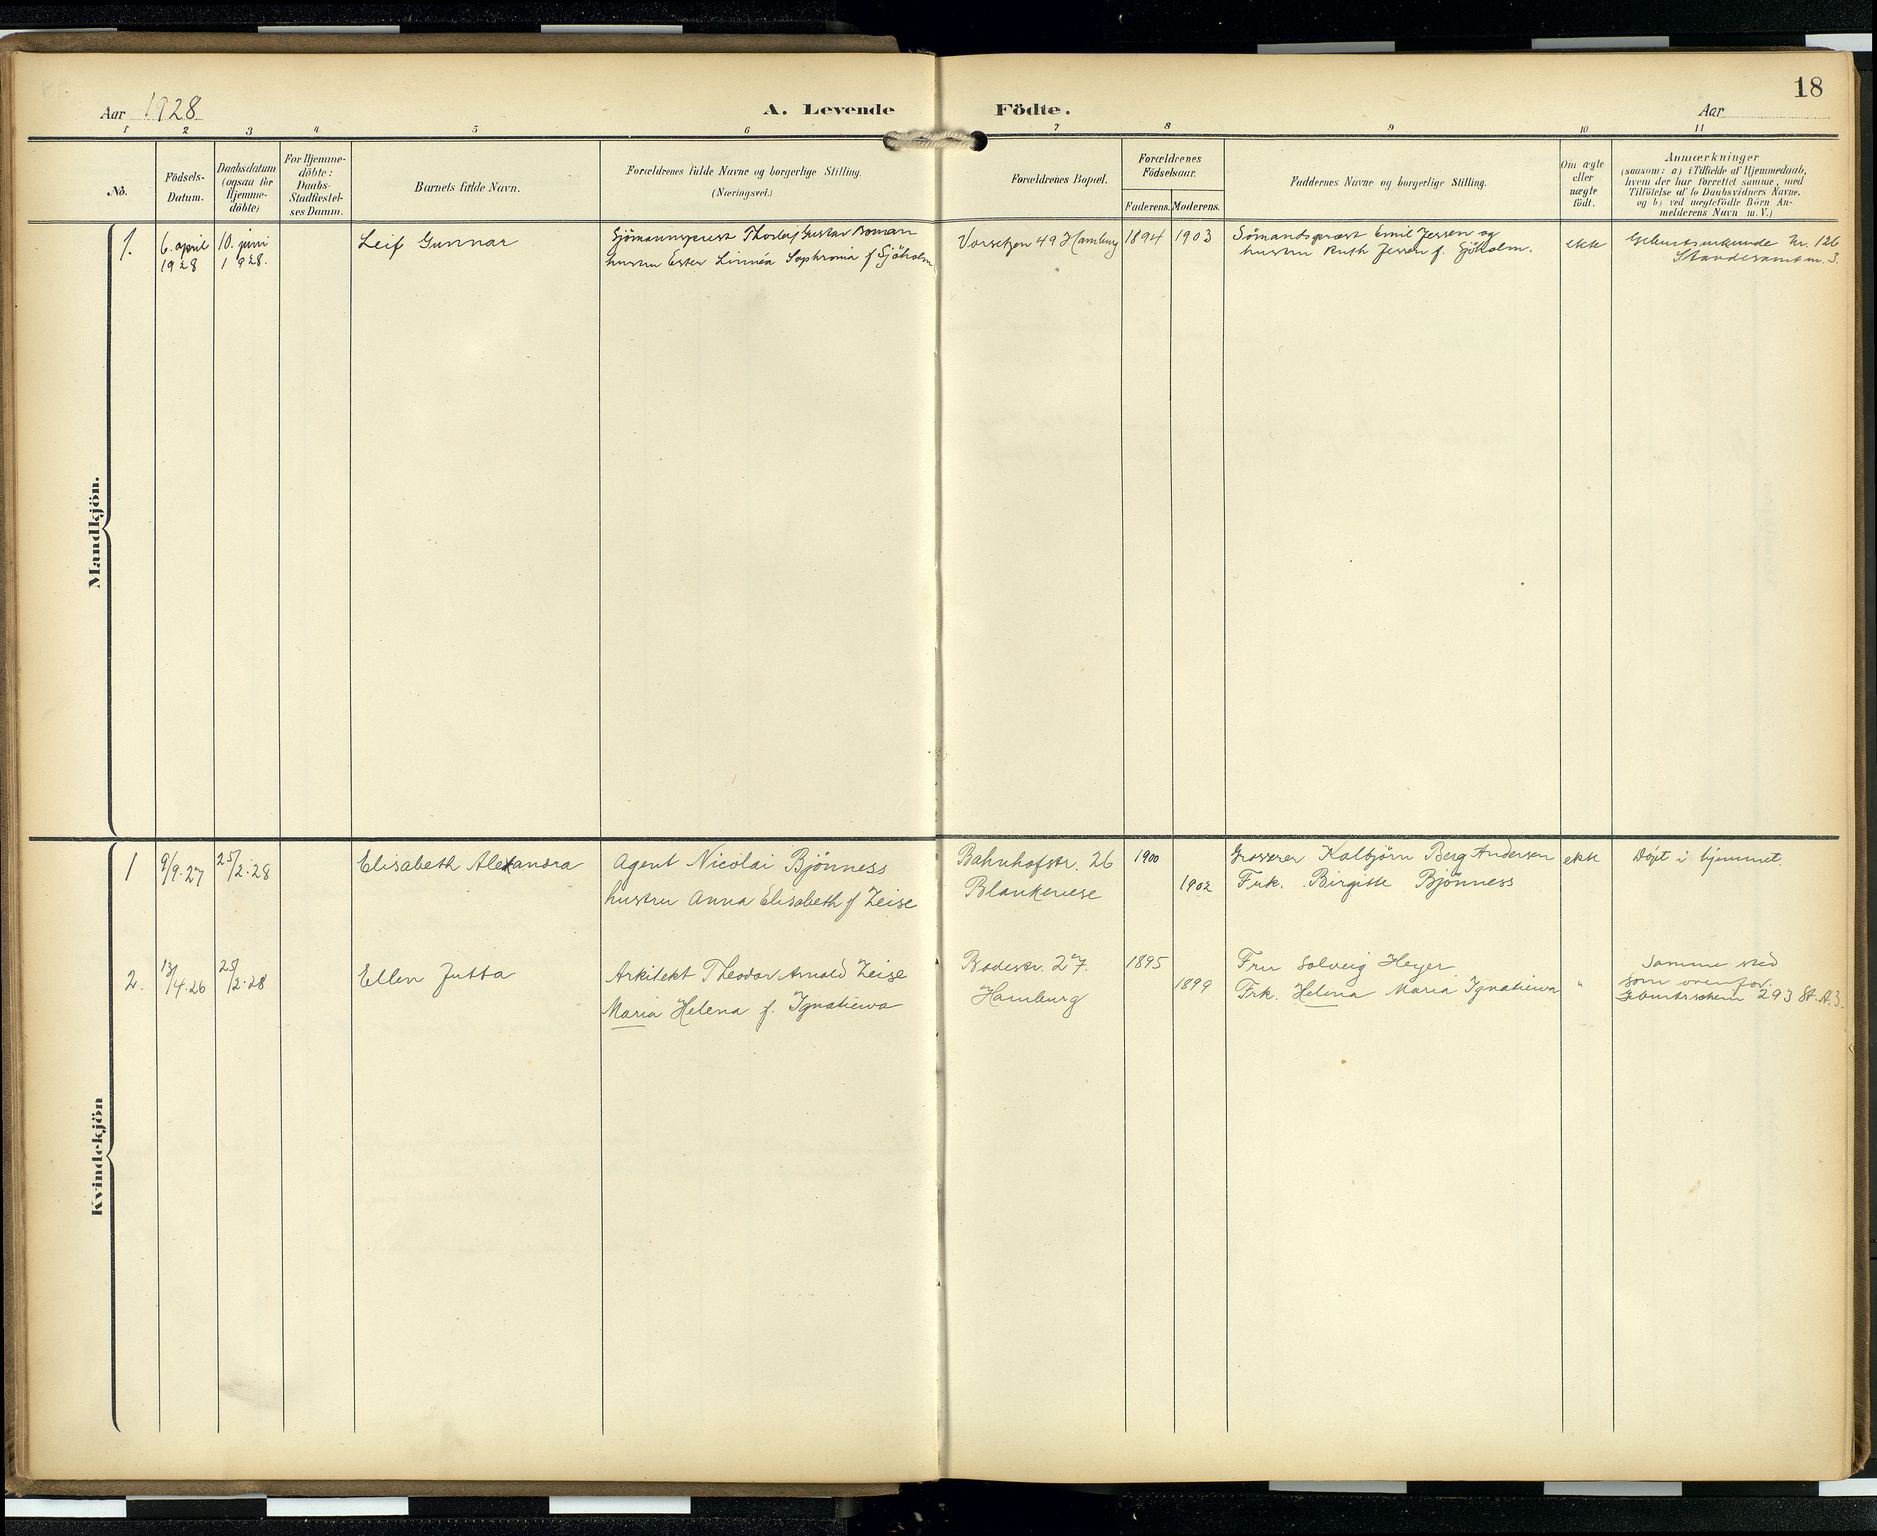 18
Aar 1928
A. Levende Födte.
Aar
1 2 3 4 5 6 7 8 9 10 11
No.
Födsels-
Datum.
Daabsdatum
(ogsaa for
Hjemme-
döbte)
For Hjemme-
döbte:
Daabs-
Stadfæstel-
ses Datum.
Barnets fulde Navn.
Forældrenes fulde Navne og borgerlige Stilling.
(Næringsvei.)
Forældrenes Bopæl.
Forældrenes
Födselsaar.
Faderens. Moderens.
Faddernes Navne og borgerlige Stilling.
Om ægte
eller
uægte
födt.
Anmærkninger
(saasom: a) i Tilfælde af Hjemmedaab,
hvem der har forrettet samme, med
Tilföielse af to Daabsvidners Navne,
og b) ved uægtefödte Börn An-
melderens Navn m. V.)
Mandkjön.
1.
6. april
1928
10. juni
1928.
Leif Gunnar
Sjömannsprest Thorleif Gustav Boman
hustru Ester Linnéa Sophronia f. Sjöholm
Vorsetzen 49 Hamburg
1894
1903
Sømandspræst Emil Jessen og
hustru Ruth Jessen f. Sjöholm.
ekte
Geburtsurkunde Nr. 126
Standesamt nr. 3.
Kvindekjön
1
9/9.27
25/2.28
Elisabeth Alexandra
Agent Nicolai Bjönness
hustru Anna Elisabeth f. Zeise
Bahnhofstr. 26
Blankenese
1900
1902
Grosserer Kolbjørn Berg Andersen
Frk. Birgitte Bjönness
ekte
Döpt i hjemmet.
2.
13/4.26
25/2.28
Ellen Jutta
Arkitekt Theodor Arnold Zeise
Maria Helena f. Ignatiewa
Bodestr. 27.
Hamburg
1895
1899
Fru Solveig Heyer
Frk. Helena Maria Ignatiewa
"
Samme sted
som ovenfor.
Geburtsschein 293 St. A. 3.